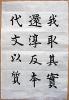 我取其實
還淳反本
代文以質